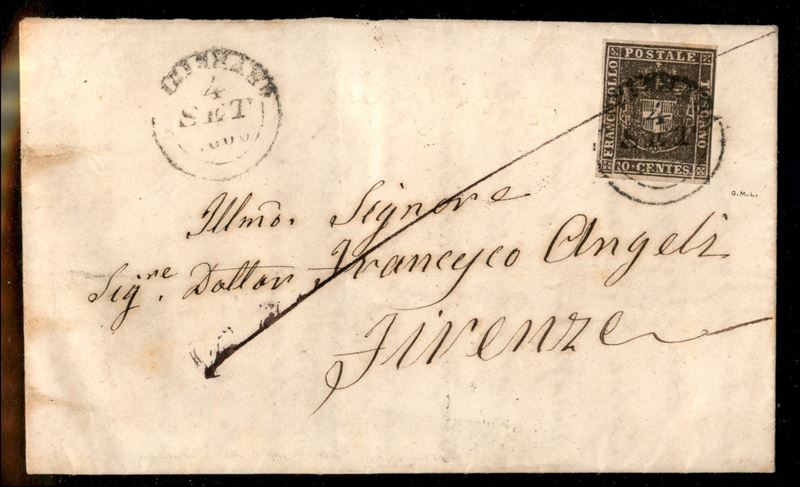 4
SET
1860
FRANCOBOLLO
POSTALE
TOSCANO
10·CENTES
4
SET
G.M.L.
Illmo. Signore
Sigre. Dottor Francesco Angeli
Firenze